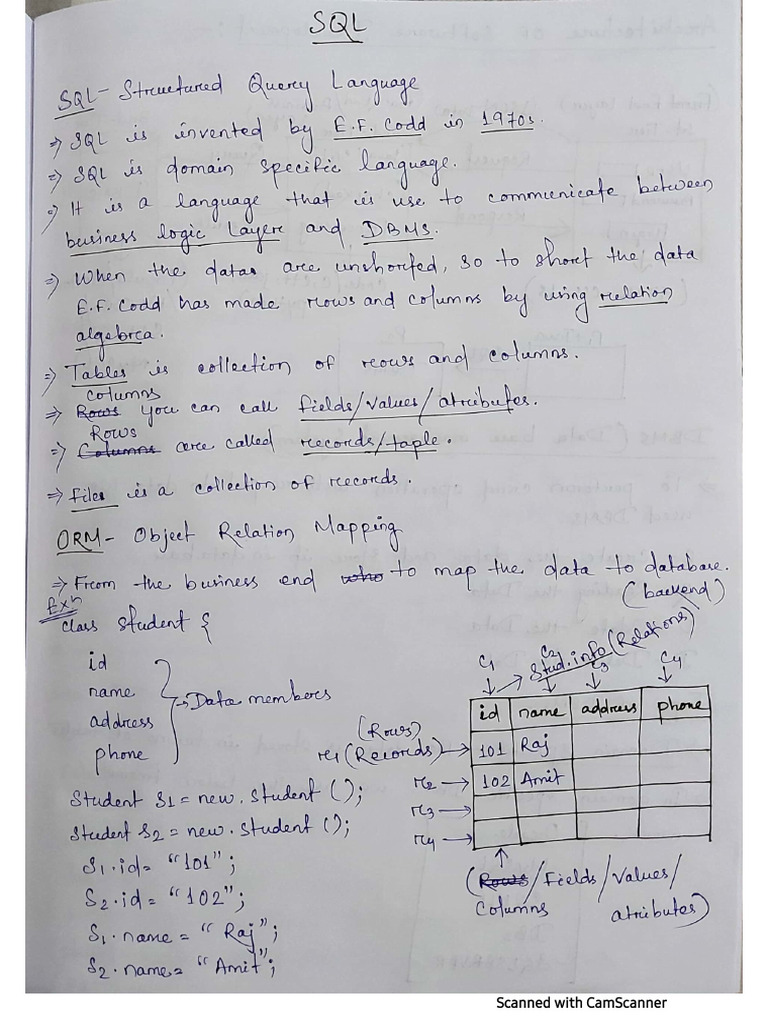 SQL
SQL - Structured Query Language
⇒ SQL is invented by E.F. Codd in 1970s.
⇒ SQL is domain specific language.
⇒ It is a language that is use to communicate between
business logic Layer and DBMS.
⇒ When the datas are unshorted, so to short the data
E.F. Codd has made rows and columns by using relation
algebra.
⇒ Tables is collection of rows and columns.
columns
⇒ Rows you can call fields/values/atributes.
Rows
⇒ Columns are called records/taple.
⇒ Files is a collection of records.
ORM - Object Relation Mapping
⇒ From the business end who to map the data to database.
(backend)
Exn
Class Student {
id
name
address
phone
→ Data members
Student S1 = new. Student ();
Student S2 = new. Student ();
S1.id = "101";
S2.id = "102";
S1.name = "Raj";
S2.name = "Amit";
→ Stud.info (Relations)
C1 C2 C3 C4
id name address phone
(Rows)
r1 (Records) → 101 Raj
r2 → 102 Amit
r3 →
r4 →
(Rows/Fields/Values/
Columns atributes)
Scanned with CamScanner